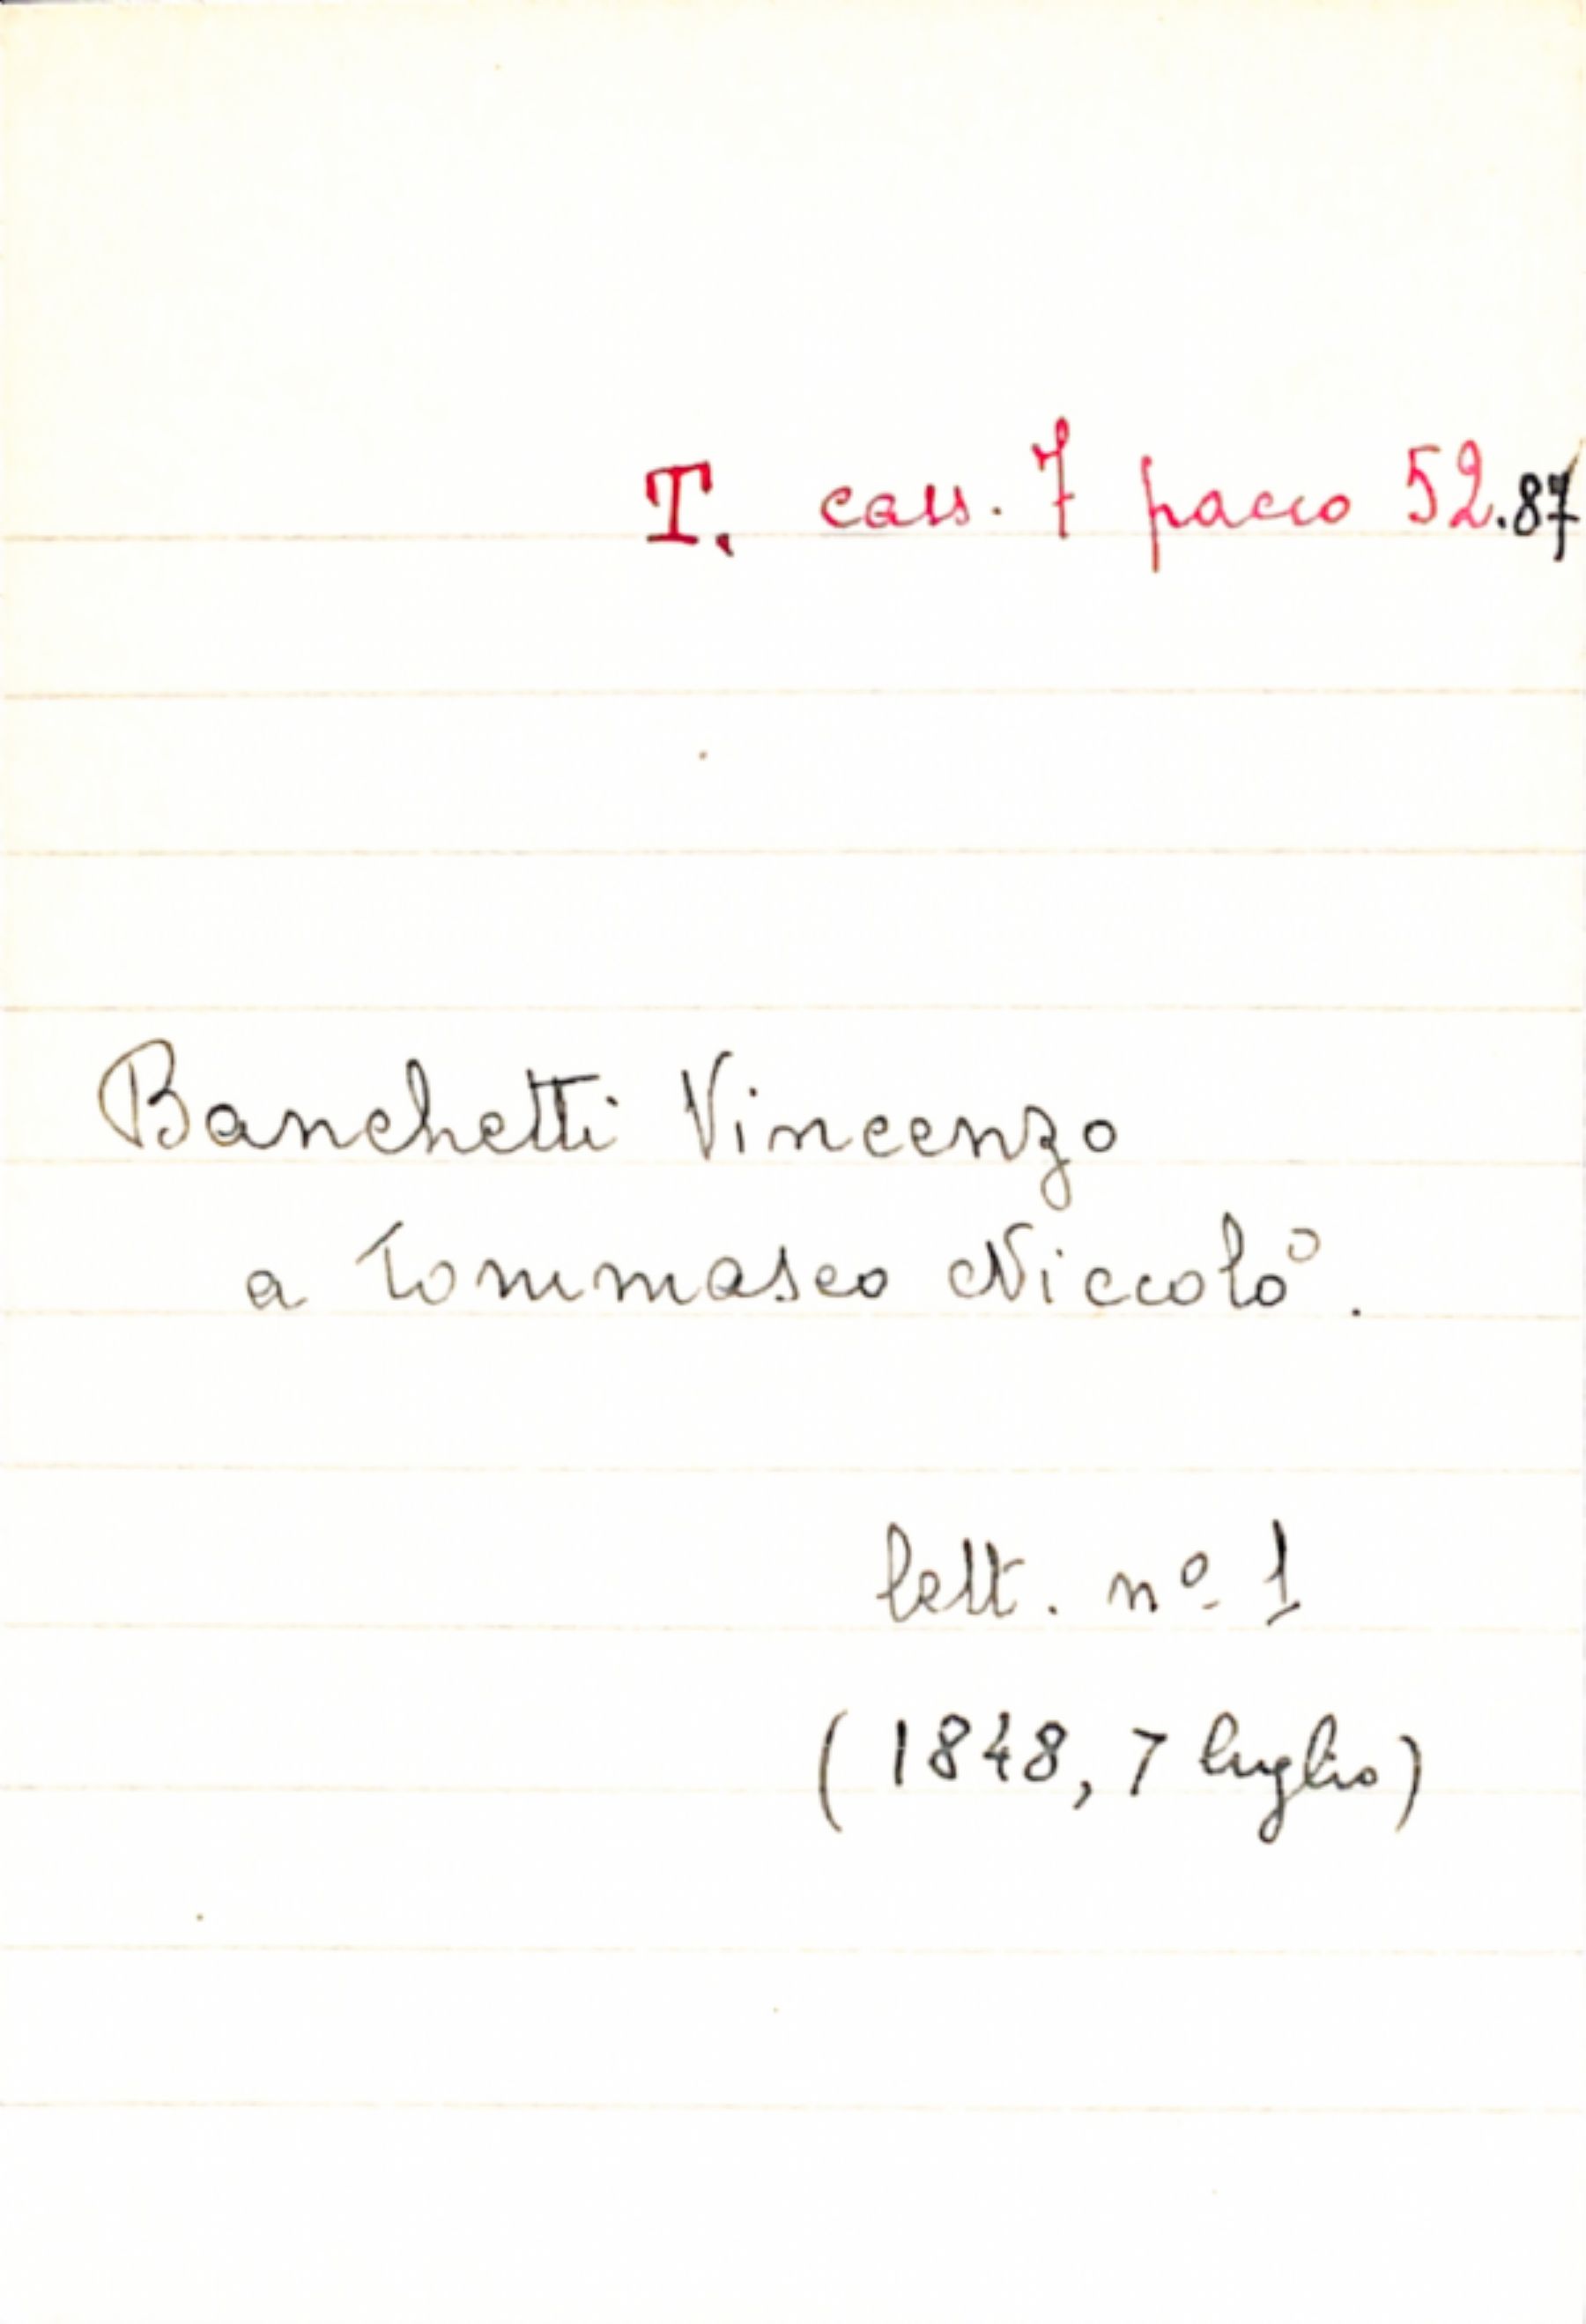 T. cass. 7 pacco 52.87
Banchetti Vincenzo
a Tommaseo Niccolò.
lett. nº 1
(1848, 7 luglio)